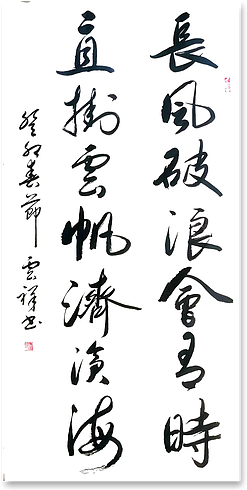 長風破浪會有時
直掛雲帆濟滄海
癸卯春節 雲祥书